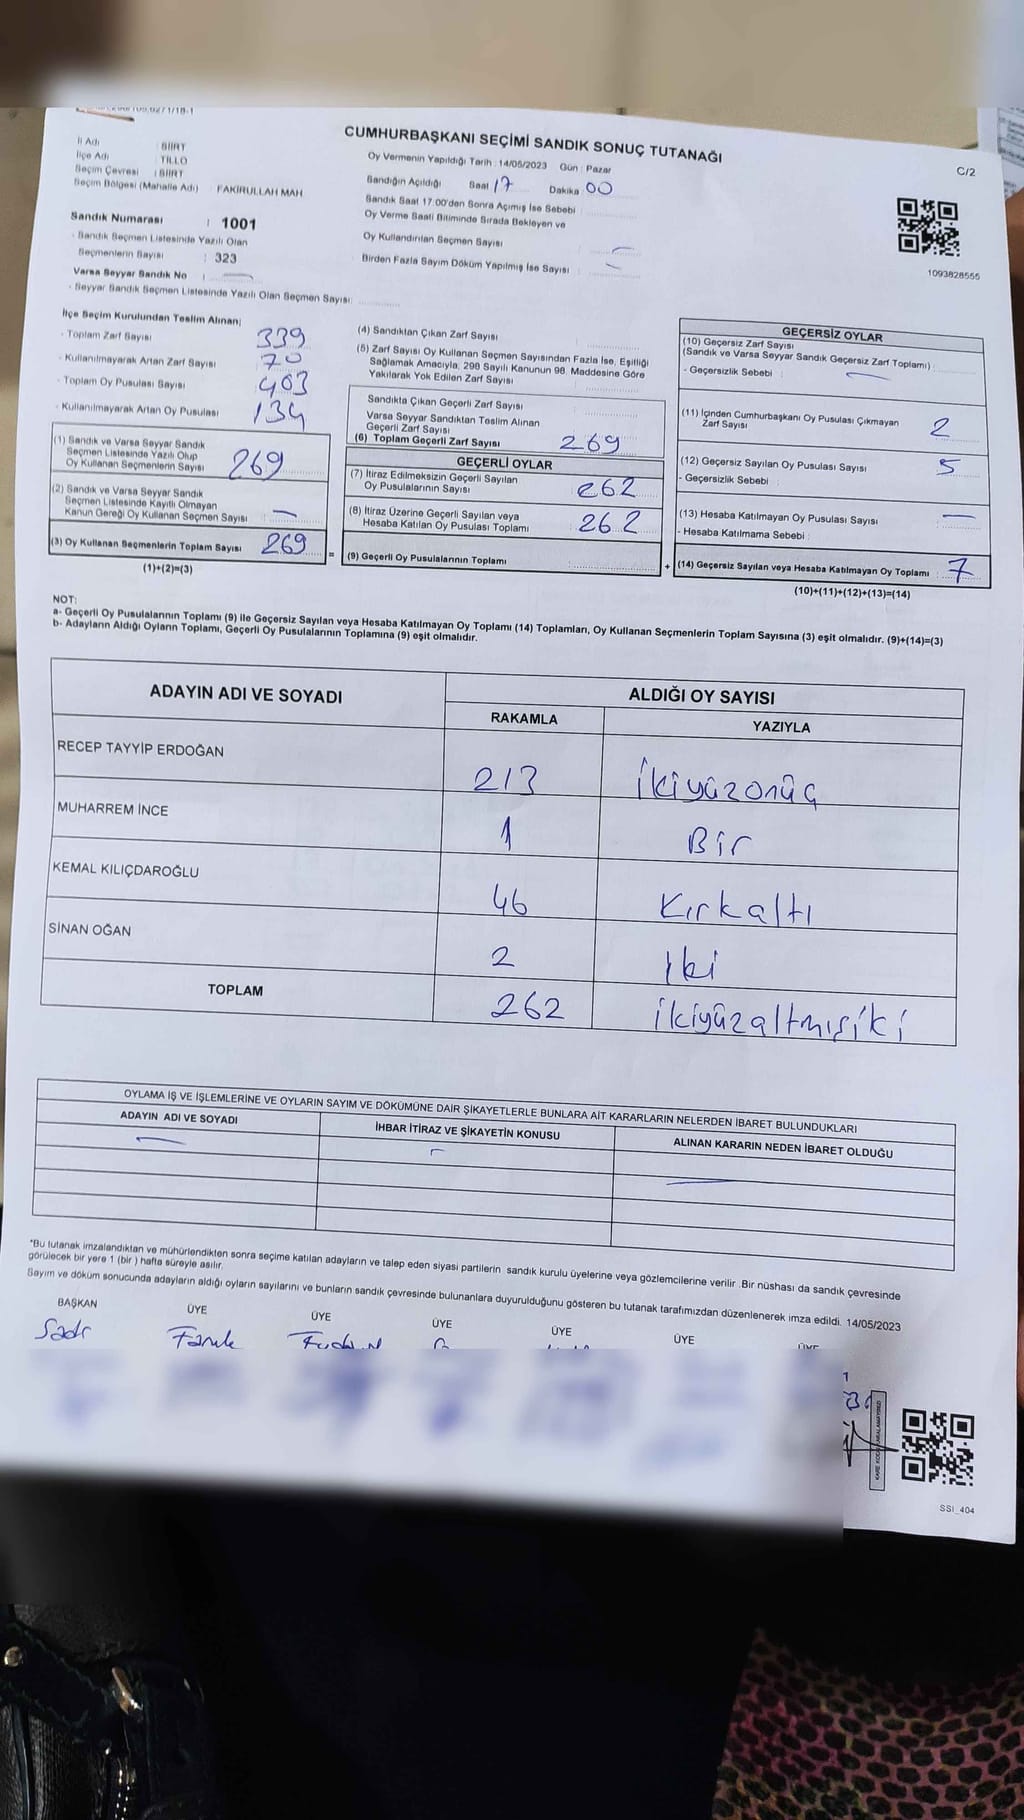 CUMHURBAŞKANI SEÇİMİ SANDIK SONUÇ TUTANAĞI
C/2
İl Adı : SİİRT
İlçe Adı : TİLLO
Seçim Çevresi : SİİRT
Seçim Bölgesi (Mahalle Adı) : FAKİRULLAH MAH.
Oy Vermenin Yapıldığı Tarih : 14/05/2023 Gün : Pazar
Sandığın Açıldığı Saat 17 Dakika 00
Sandık Saat 17:00'den Sonra Açımış İse Sebebi
Oy Verme Saati Bitiminde Sırada Bekleyen ve
Oy Kullandırılan Seçmen Sayısı -
Birden Fazla Sayım Döküm Yapılmış İse Sayısı -
1093828555
Sandık Numarası : 1001
- Sandık Seçmen Listesinde Yazılı Olan
Seçmenlerin Sayısı : 323
Varsa Seyyar Sandık No : -
- Seyyar Sandık Seçmen Listesinde Yazılı Olan Seçmen Sayısı:
İlçe Seçim Kurulundan Teslim Alınan;
- Toplam Zarf Sayısı 339
- Kullanılmayarak Artan Zarf Sayısı 70
- Toplam Oy Pusulası Sayısı 403
- Kullanılmayarak Artan Oy Pusulası 134
(1) Sandık ve Varsa Seyyar Sandık
Seçmen Listesinde Yazılı Olup
Oy Kullanan Seçmenlerin Sayısı 269
(2) Sandık ve Varsa Seyyar Sandık
Seçmen Listesinde Kayıtlı Olmayan
Kanun Gereği Oy Kullanan Seçmen Sayısı -
(3) Oy Kullanan Seçmenlerin Toplam Sayısı 269
(1)+(2)=(3)
=
(4) Sandıktan Çıkan Zarf Sayısı
(5) Zarf Sayısı Oy Kullanan Seçmen Sayısından Fazla İse, Eşitliği
Sağlamak Amacıyla, 298 Sayılı Kanunun 98. Maddesine Göre
Yakılarak Yok Edilen Zarf Sayısı
Sandıkta Çıkan Geçerli Zarf Sayısı
Varsa Seyyar Sandıktan Teslim Alınan
Geçerli Zarf Sayısı
(6) Toplam Geçerli Zarf Sayısı 269
GEÇERLİ OYLAR
(7) İtiraz Edilmeksizin Geçerli Sayılan
Oy Pusulalarının Sayısı 262
(8) İtiraz Üzerine Geçerli Sayılan veya
Hesaba Katılan Oy Pusulası Toplamı 262
(9) Geçerli Oy Pusulalarının Toplamı
+
GEÇERSİZ OYLAR
(10) Geçersiz Zarf Sayısı
(Sandık ve Varsa Seyyar Sandık Geçersiz Zarf Toplamı) :
- Geçersizlik Sebebi : -
(11) İçinden Cumhurbaşkanı Oy Pusulası Çıkmayan
Zarf Sayısı 2
(12) Geçersiz Sayılan Oy Pusulası Sayısı 5
- Geçersizlik Sebebi :
(13) Hesaba Katılmayan Oy Pusulası Sayısı -
- Hesaba Katılmama Sebebi :
(14) Geçersiz Sayılan veya Hesaba Katılmayan Oy Toplamı : 7
(10)+(11)+(12)+(13)=(14)
NOT:
a- Geçerli Oy Pusulalarının Toplamı (9) ile Geçersiz Sayılan veya Hesaba Katılmayan Oy Toplamı (14) Toplamları, Oy Kullanan Seçmenlerin Toplam Sayısına (3) eşit olmalıdır. (9)+(14)=(3)
b- Adayların Aldığı Oyların Toplamı, Geçerli Oy Pusulalarının Toplamına (9) eşit olmalıdır.
ADAYIN ADI VE SOYADI ALDIĞI OY SAYISI
RAKAMLA YAZIYLA
RECEP TAYYİP ERDOĞAN 213 İkiyüzonüç
MUHARREM İNCE 1 Bir
KEMAL KILIÇDAROĞLU 46 Kırkaltı
SİNAN OĞAN 2 İki
TOPLAM 262 ikiyüzaltmışiki
OYLAMA İŞ VE İŞLEMLERİNE VE OYLARIN SAYIM VE DÖKÜMÜNE DAİR ŞİKAYETLERLE BUNLARA AİT KARARLARIN NELERDEN İBARET BULUNDUKLARI
ADAYIN ADI VE SOYADI İHBAR İTİRAZ VE ŞİKAYETİN KONUSU ALINAN KARARIN NEDEN İBARET OLDUĞU
- - -
*Bu tutanak imzalandıktan ve mühürlendikten sonra seçime katılan adayların ve talep eden siyasi partilerin sandık kurulu üyelerine veya gözlemcilerine verilir .Bir nüshası da sandık çevresinde
görülecek bir yere 1 (bir ) hafta süreyle asılır.
Sayım ve döküm sonucunda adayların aldığı oyların sayılarını ve bunların sandık çevresinde bulunanlara duyurulduğunu gösteren bu tutanak tarafımızdan düzenlenerek imza edildi. 14/05/2023
BAŞKAN ÜYE ÜYE ÜYE ÜYE ÜYE ÜYE
SSI_404